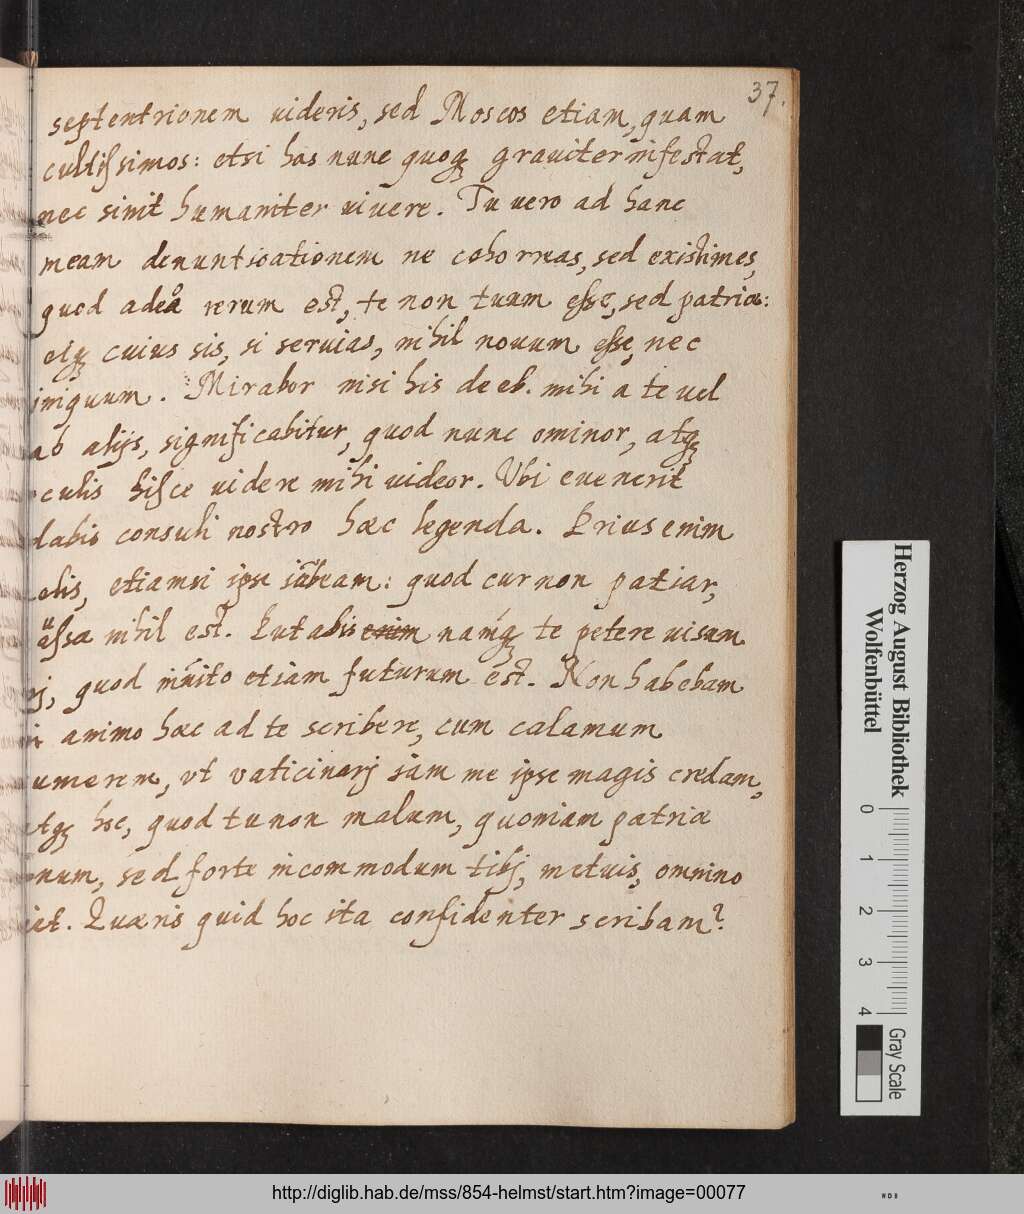 37.
septentrionem uideris, sed Moscos etiam, quam
cultißimos: etsi hos nunc quoqꝫ grauiter infestat,
nec sinit humaniter uiuere. Tu uero ad hanc
meam denuntioationem ne cohorreas, sed existimes,
quod adeò uerum est, te non tuum eße, sed patriæ:
eiqꝫ cuius sis, si seruias, nihil nouum eße, nec
iniquum. Mirabor nisi his deeb. mihi a te uel
ab alijs, significabitur, quod nunc ominor, atqꝫ
oculis hisce uidere mihi uideor. Vbi euenerit
dabis consuli nostro hæc legenda. Prius enim
etiamsi ipse iubeam: quod cur non patiar,
nihil est. Putabis enim namqꝫ te petere uisum
quod inuito etiam futurum est. Non habebam
animo hæc ad te scribere, cum calamum
sumerem, vt vaticinarj iam me ipse magis credam,
atqꝫ hoc, quod tu non malum, quoniam patriæ
bonum, sed forte incommodum tibj, metuis, omnino
fiet. Quæris quid hoc ita confidenter scribam?
Herzog August Bibliothek
Wolfenbüttel
0 1 2 3 4
Gray Scale
http://diglib.hab.de/mss/854-helmst/start.htm?image=00077